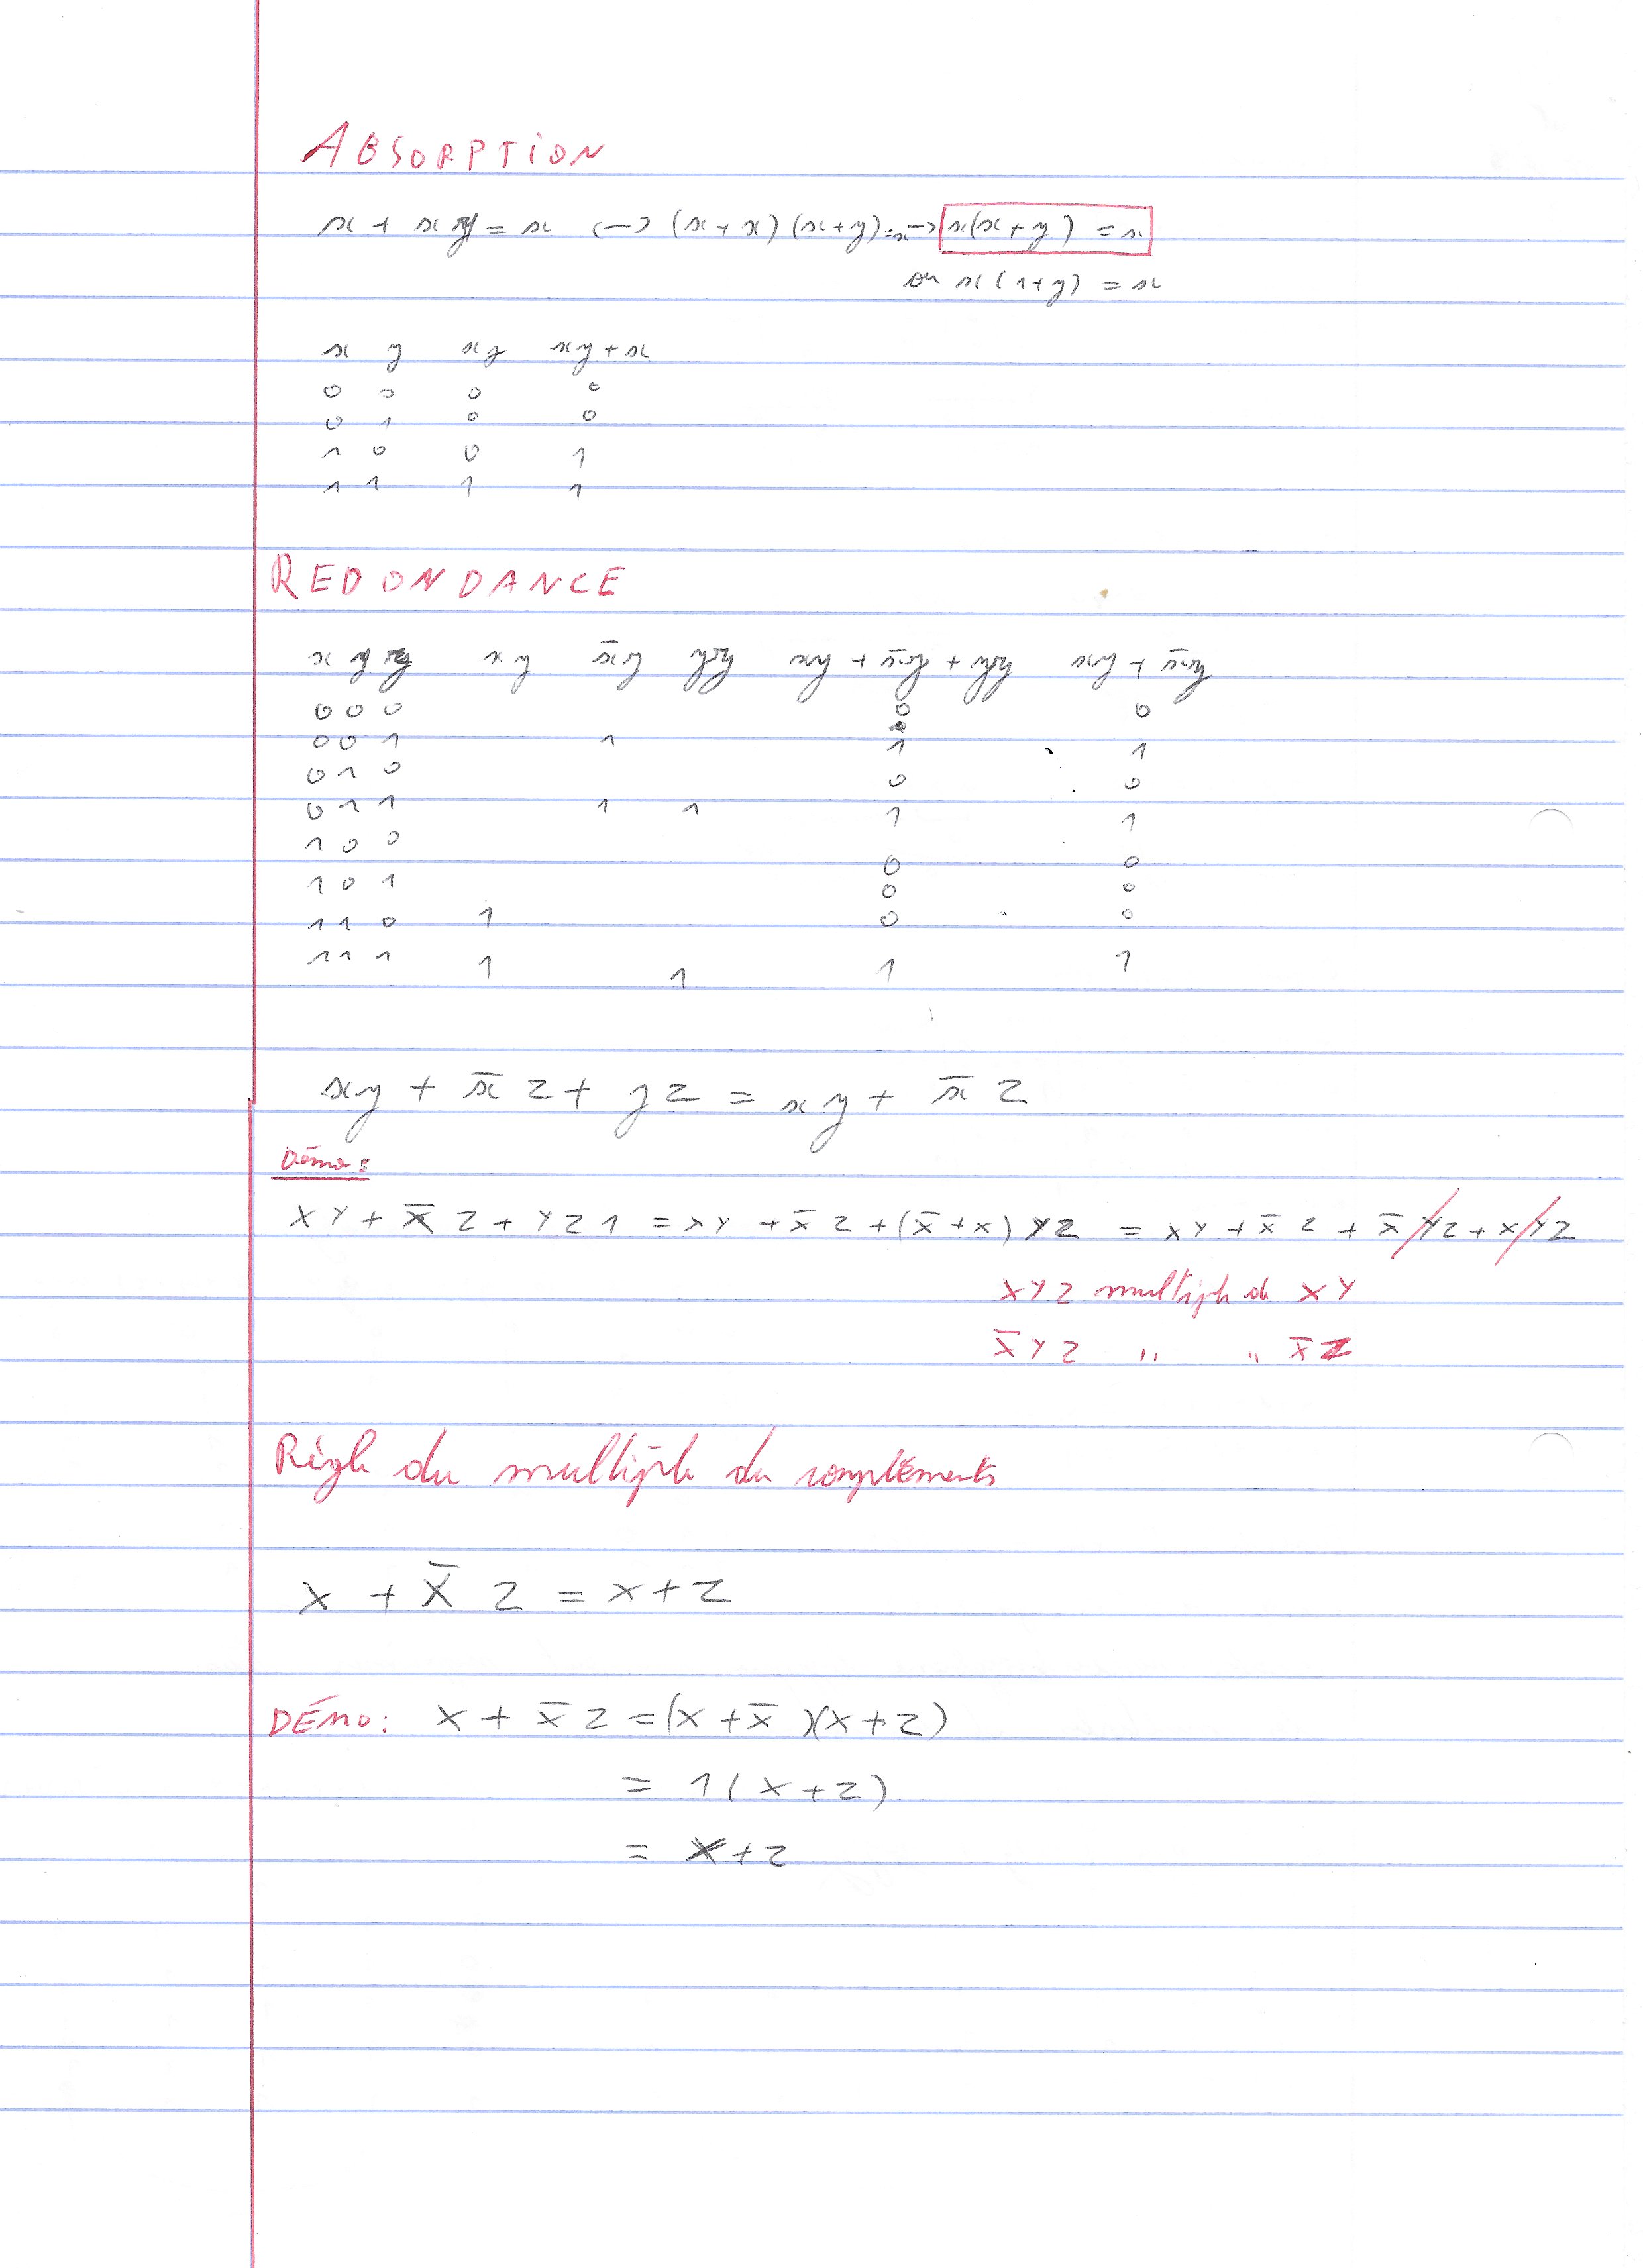 ABSORPTION
x + xy = x <-> (x + x) (x+y) = x -> x(x + y) = x
ou x(1+y) = x
x y xy xy + x
0 0 0 0
0 1 0 0
1 0 0 1
1 1 1 1
REDONDANCE
x y z xy x̄z yz xy + x̄z + yz xy + x̄z
0 0 0 0 0
0 0 1 1 1 1
0 1 0 0 0
0 1 1 1 1 1 1
1 0 0 0 0
1 0 1 0 0
1 1 0 1 0 0
1 1 1 1 1 1 1
xy + x̄ z + yz = xy + x̄ z
Démo:
XY + X̄ Z + YZ1 = XY + X̄ Z + (X̄ + X) YZ = XY + X̄ Z + X̄YZ + XYZ
XYZ multiple de XY
X̄YZ " " X̄Z
Règle du multiple du compléments
X + X̄ Z = X + Z
DÉMO: X + X̄ Z = (X + X̄)(X + Z)
= 1 (X + Z)
= X + Z